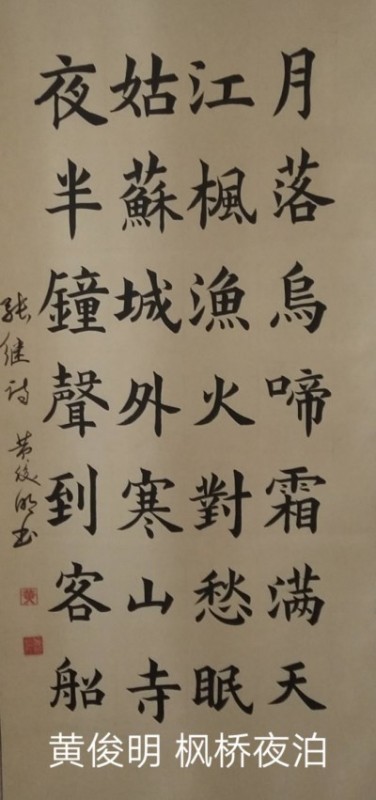 月落烏啼霜满天
江楓漁火對愁眠
姑蘇城外寒山寺
夜半鐘聲到客船
张继诗 黄俊明书
黄俊明 枫桥夜泊